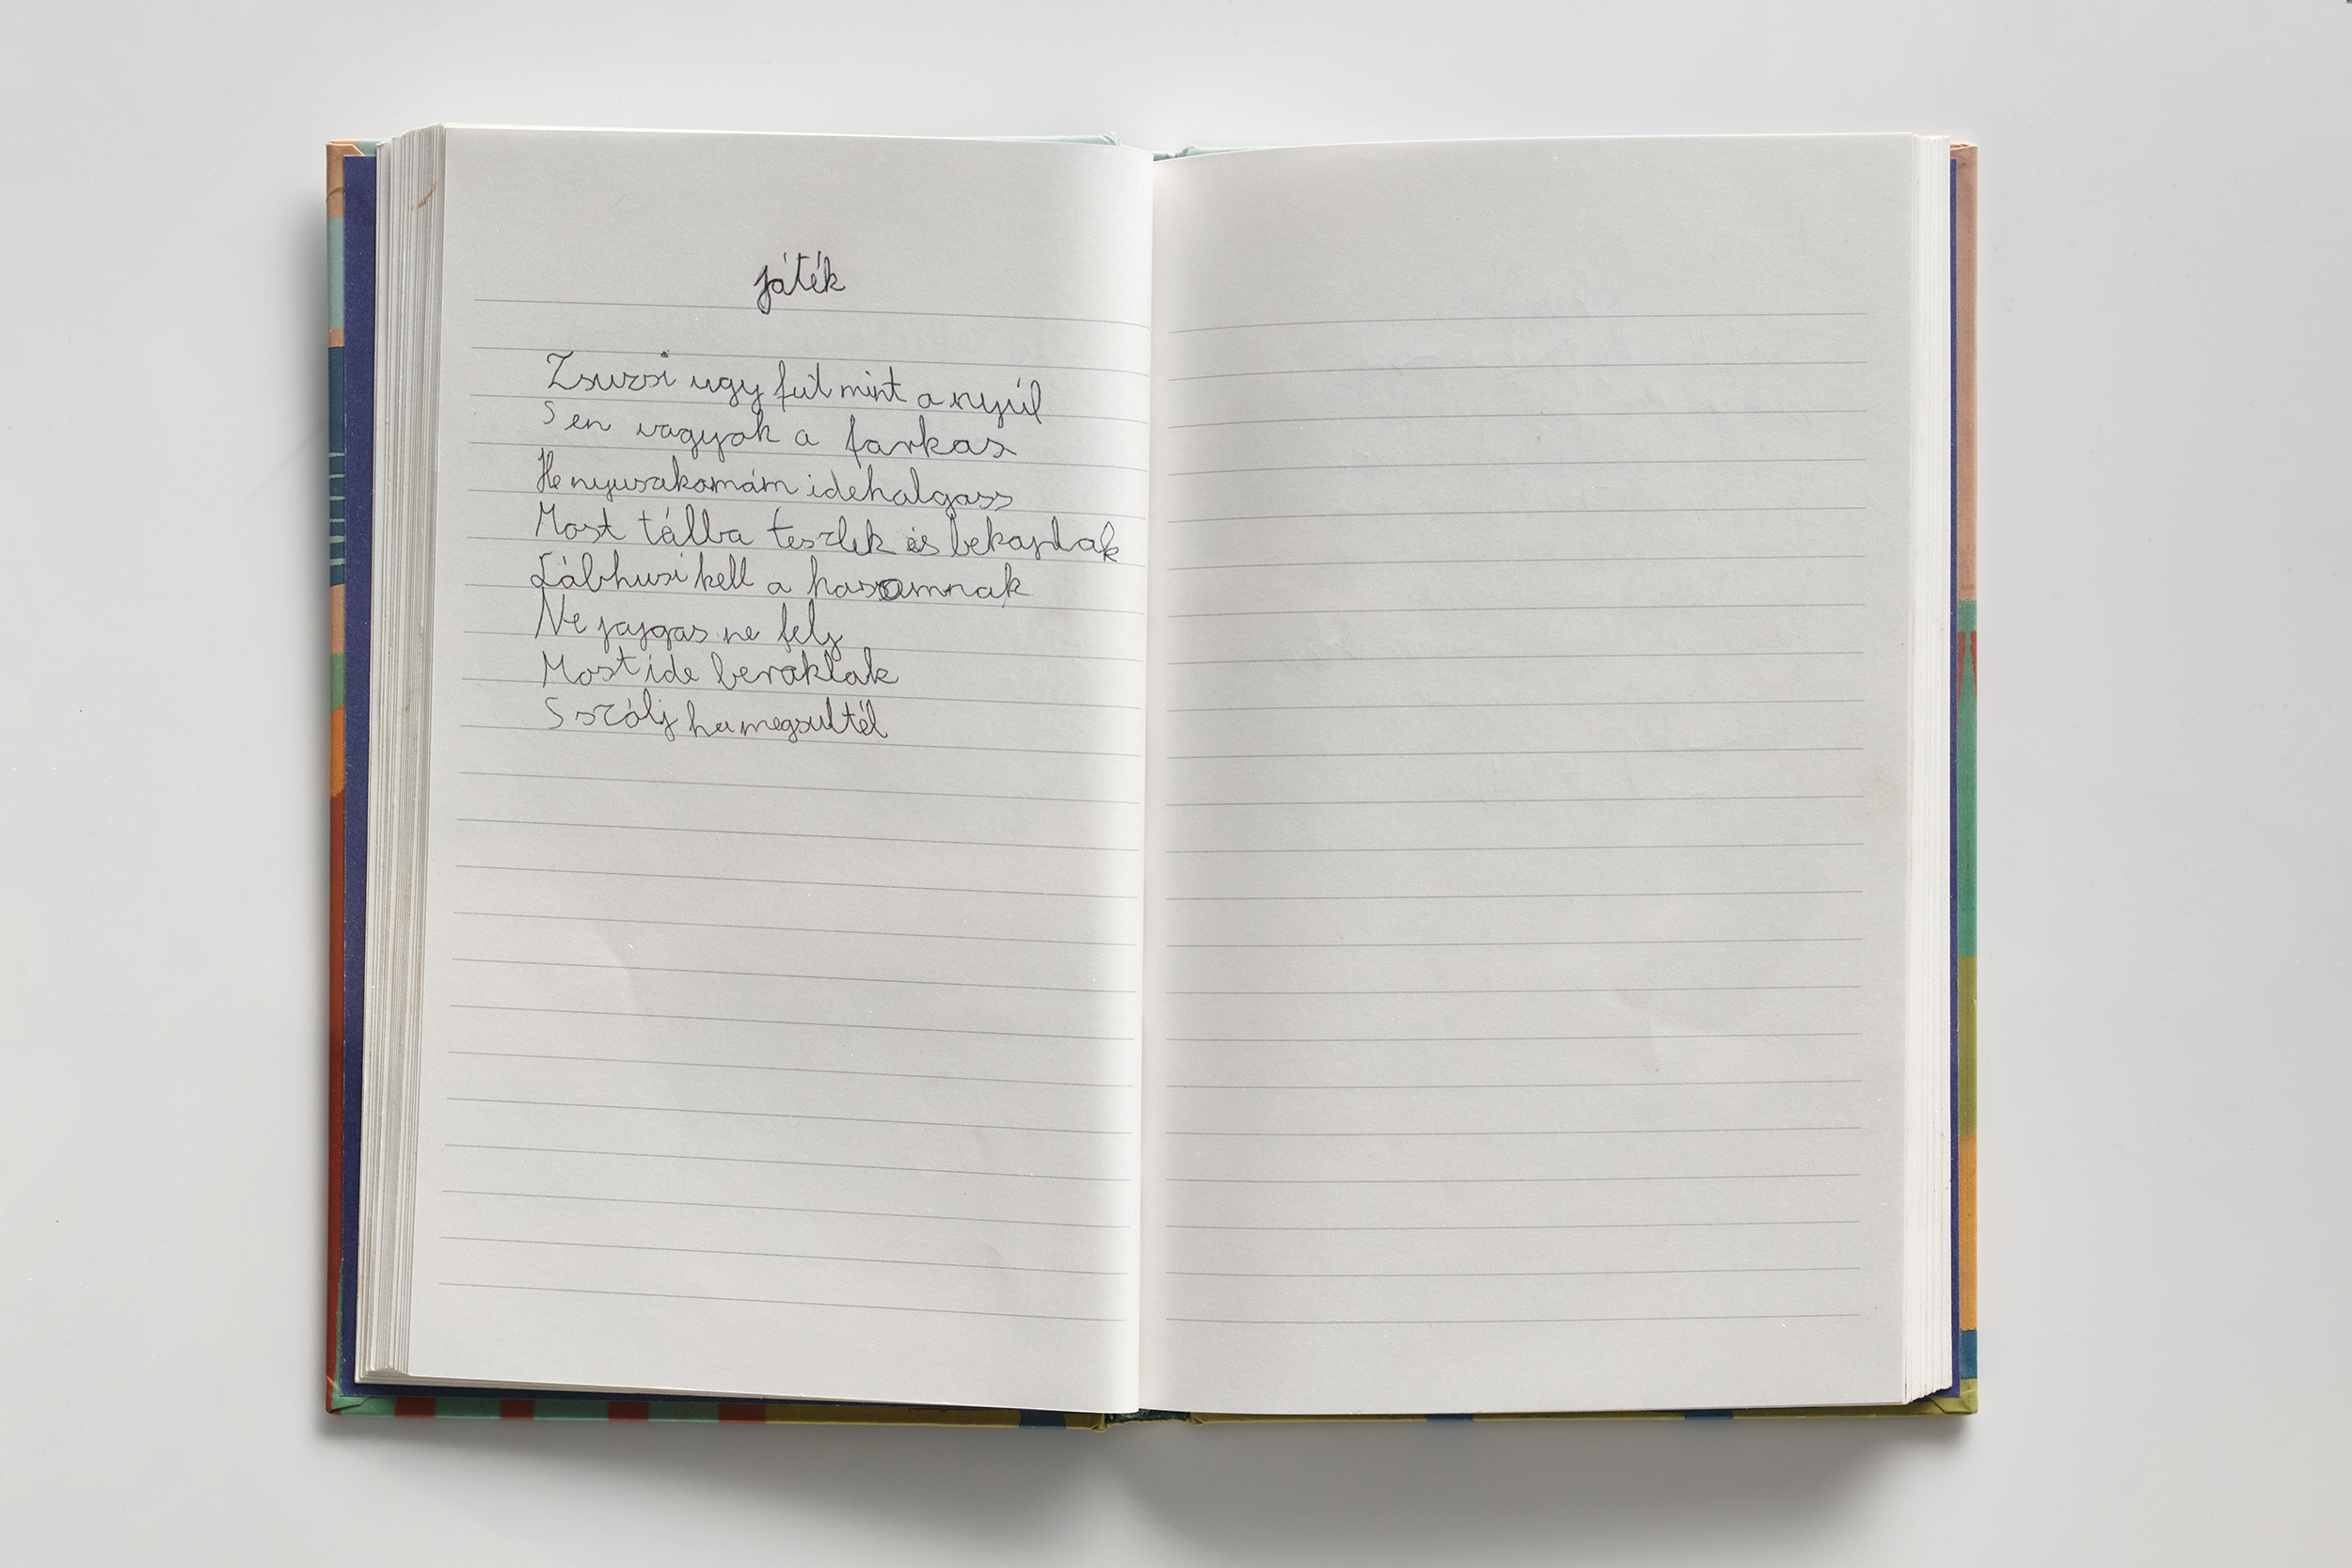 játék
Zsuzsi ugy fut mint a nyúl
S en vagyok a farkas
He nyusakomám idehalgass
Most tálba teszlek és bekaplak
Lábhusi kell a hasamnak
Ne jajgas ne felj
Most ide beraklak
S szólj ha megsultél